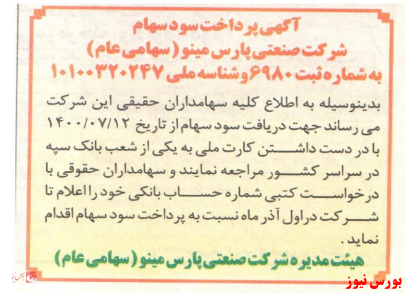 آگهی پرداخت سود سهام
شرکت صنعتی پارس مینو (سهامی عام)
به شماره ثبت ۶۹۸۰ و شناسه ملی ۱۰۱۰۰۳۲۰۲۴۷
بدینوسیله به اطلاع کلیه سهامداران حقیقی این شرکت
می رساند جهت دریافت سود سهام از تاریخ ۱۴۰۰/۰۷/۱۲
با در دست داشتن کارت ملی به یکی از شعب بانک سپه
در سراسر کشور مراجعه نمایند و سهامداران حقوقی با
درخواست کتبی شماره حساب بانکی خود را اعلام تا
شرکت در اول آذر ماه نسبت به پرداخت سود سهام اقدام
نماید.
هیئت مدیره شرکت صنعتی پارس مینو (سهامی عام)
بورس نیوز